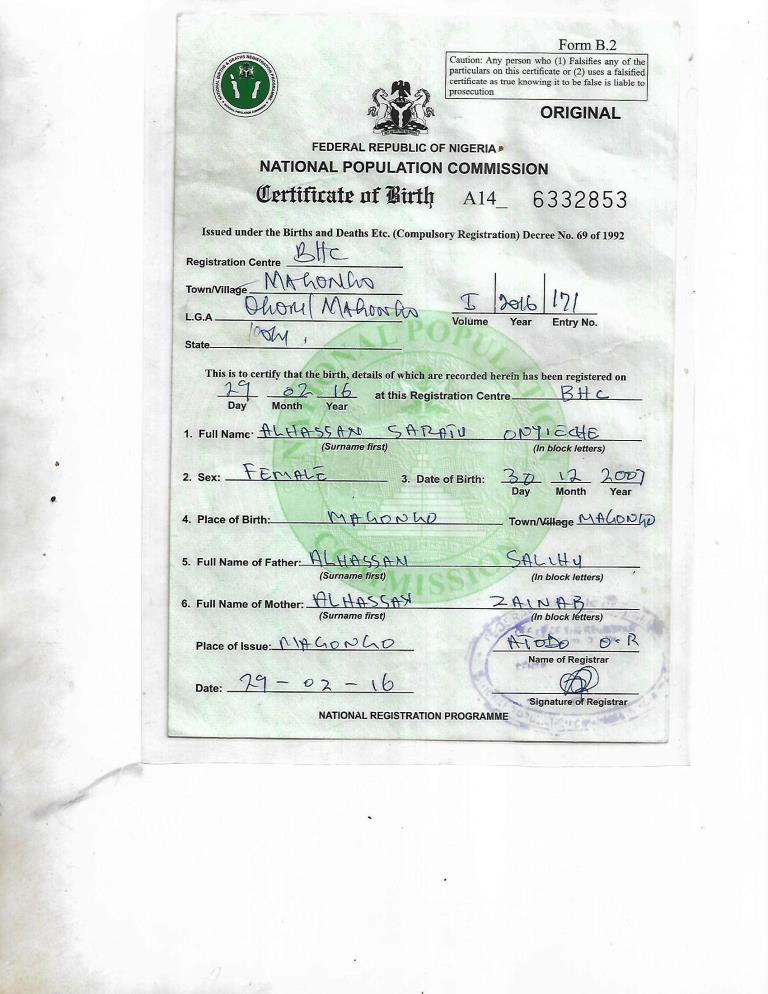 Form B.2
Caution: Any person who (1) Falsifies any of the
particulars on this certificate or (2) uses a falsified
certificate as true knowing it to be false is liable to
prosecution
ORIGINAL
FEDERAL REPUBLIC OF NIGERIA
NATIONAL POPULATION COMMISSION
Certificate of Birth A14_ 6332853
Issued under the Births and Deaths Etc. (Compulsory Registration) Decree No. 69 of 1992
Registration Centre BHC
Town/Village MAGONGO
L.G.A MAGONGO
I 2016 171
Volume Year Entry No.
State
This is to certify that the birth, details of which are recorded herein has been registered on
29 02 16 at this Registration Centre BHC
Day Month Year
1. Full Name: ALHASSAN SARATU ONYIECHE
(Surname first) (In block letters)
2. Sex: FEMALE 3. Date of Birth: 30 12 2007
Day Month Year
4. Place of Birth: MAGONGO Town/Village MAGONGO
5. Full Name of Father: ALHASSAN SALIHU
(Surname first) (In block letters)
6. Full Name of Mother: ALHASSAN ZAINAB
(Surname first) (In block letters)
Place of Issue: MAGONGO ATODO O-R
Name of Registrar
Date: 29-02-16
Signature of Registrar
NATIONAL REGISTRATION PROGRAMME